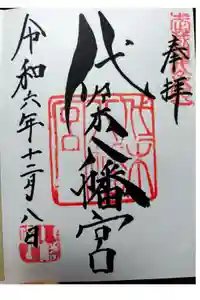 奉拝
代々木八幡宮
令和六年十二月八日